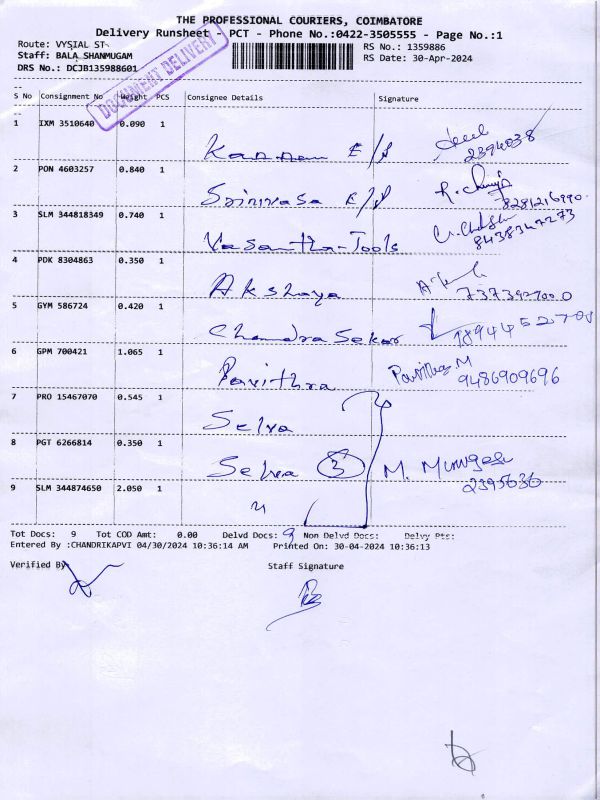 THE PROFESSIONAL COURIERS, COIMBATORE
Delivery Runsheet - PCT - Phone No.:0422-3505555 - Page No.:1
Route: VYSIAL ST
RS No.: 1359886
Staff: BALA SHANMUGAM
RS Date: 30-Apr-2024
DRS No.: DCJB135988601
DOCUMENT DELIVERY
S No Consignment No Weight PCS Consignee Details Signature
1 IXM 3510640 0.090 1 Kannan E/S 2394038
2 PON 4603257 0.840 1 Srinivasa E/P 8281216990
3 SLM 344818349 0.740 1 Vasantha-Tools 8438347273
4 PDK 8304863 0.350 1 Akshaya 7373927000
5 GYM 586724 0.420 1 Chandra Sekar
6 GPM 700421 1.065 1 Pavithra Pavithra M 9486909696
7 PRO 15467070 0.545 1 Selva
8 PGT 6266814 0.350 1 Selva 3 M. Murugesh 2395636
9 SLM 344874650 2.050 1 "
Tot Docs: 9 Tot COD Amt: 0.00 Delvd Docs: 9 Non Delvd Docs: Delvy Pts:
Entered By :CHANDRIKAPVI 04/30/2024 10:36:14 AM Printed On: 30-04-2024 10:36:13
Verified By
Staff Signature